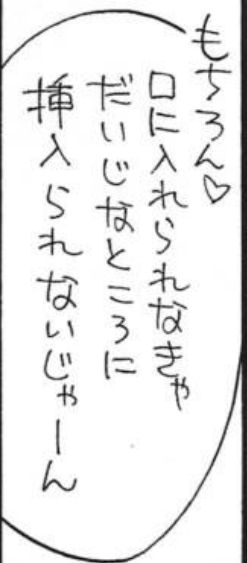 もちろん♡
口に入れられなきゃ
だいじなところに
挿入られないじゃーん